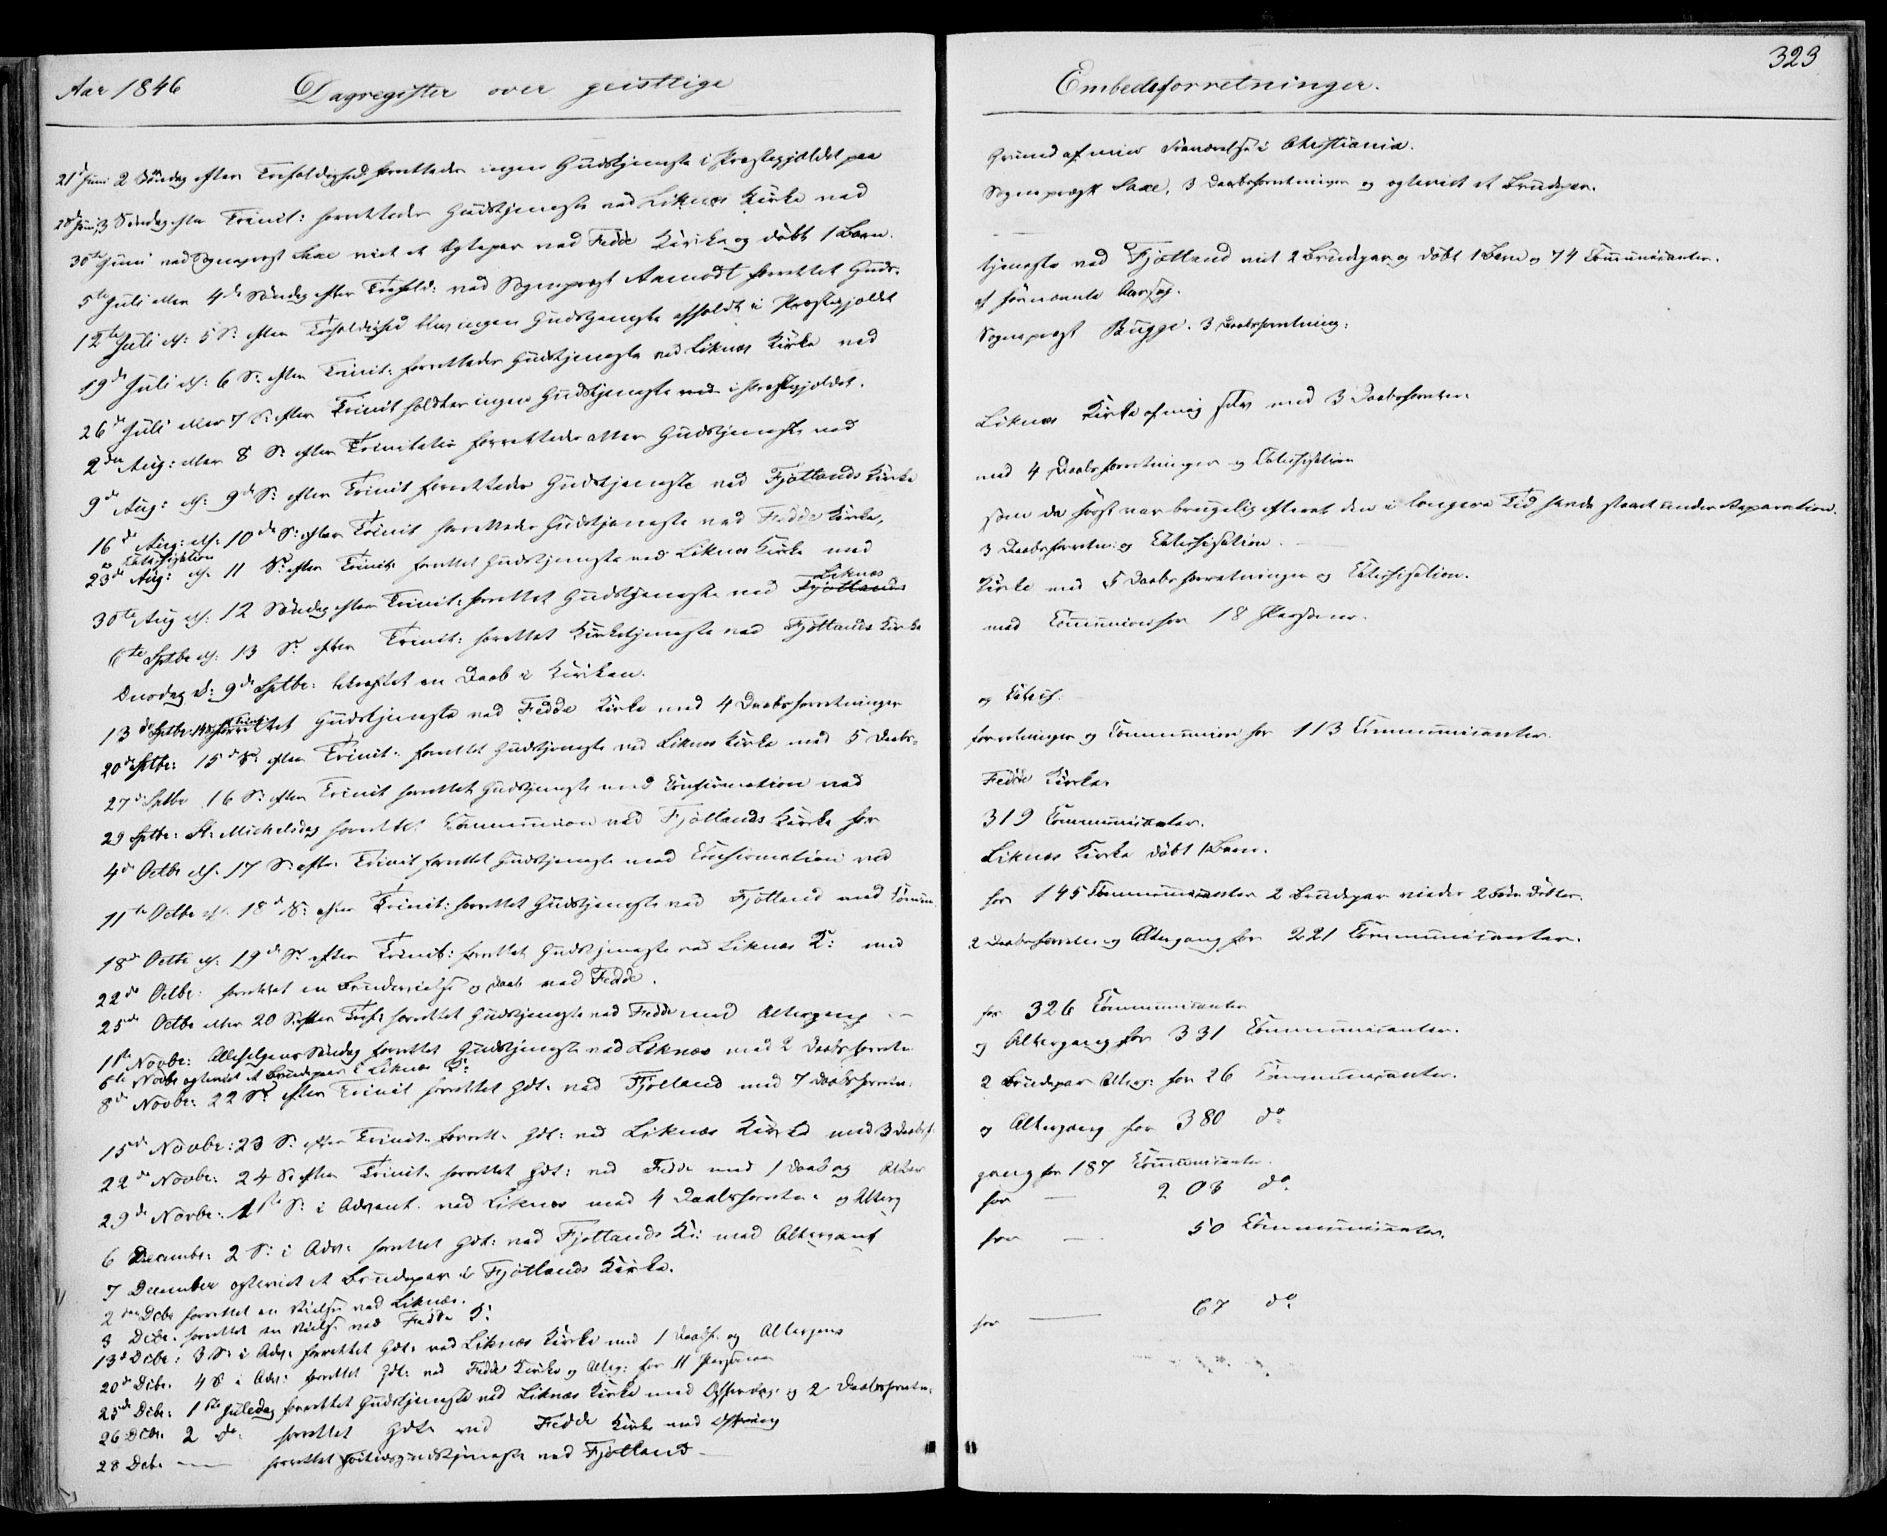 Aar 1846 Dagregister over geistlige
21de Juni 2 Søndag efter Trefoldighed forrettedes ingen Gudstjeneste i Præstegjældet paa
28de Juni, 3 Søndag efter Trinit: forrettedes Gudstjeneste ved Liknes Kirke ved
30te Juni ved Sognepræst Saxe viet et Ægtepar ved Fedde Kirke og døbt 1 Barn.
5te Juli eller 4de Søndag efter Trefold: ved Sognepræst Aamodt forrettet Guds-
12te Juli el: 5 S: efter Trefoldighed blev ingen Gudstjeneste afholdt i Præstegjældet
19de Juli el: 6 S: efter Trinit: forrettedes Gudstjeneste ved Liknes Kirke ved
26de Juli eller 7 S: efter Trinit holdtes ingen Gudstjeneste i Præstegjældet.
2den Aug: eller 8 S: efter Trinitatis forrettedes atter Gudstjeneste ved
9de Aug: el: 9de S: efter Trinit forrettedes Gudstjeneste ved Fjotlands Kirke
16de Aug: el: 10de S: efter Trinit forrettedes Gudstjeneste ved Fedde Kirke,
og Catechisation
23de Aug: el. 11 S: efter Trinit: forrettet Gudstjeneste ved Liknes Kirke med
Liknes
30te Aug el: 12 Søndag efter Trinit: forrettet Gudstjeneste ved Fjotlands
6te Septbr el: 13 S: efter Trinit: forrettet Kirketjeneste ved Fjotlands Kirke
Onsdag d: 9de Septbr: bekræftet en Daab i Kirken.
13de Septbr: forrettet Gudstjeneste ved Fedde Kirke med 4 Daabsforretninger
20de Septbr: 15de S: efter Trinit: forrettet Gudstjeneste ved Liknes Kirke med 5 Daabs-
27de Septbr 16 S: efter Trinit forrettet Gudstjeneste med Confirmation ved
29 Septbr: St: Michelsdag forrettet Communion ved Fjotlands Kirke for
4de Octbr el. 17 S: efter Trinit forrettet Gudstjeneste med Confirmation ved
11te Octbr el. 18de S: efter Trinit: forrettet Gudstjeneste ved Fjotland med Commun.
18de Octbr el. 19de S: efter Trinit: forrettet Gudstjeneste ved Liknes K: med
22de Octbr: forrettet en Brudevielse og Daab ved Fedde.
25de Octbr eller 20 S: efter Tref: forrettet Gudstjeneste ved Fedde med Altergang
1ste Novbr: Allehelgens Søndag forrettet Gudstjeneste ved Liknes med 2 Daabsforretn
6te Novbr ægteviet et Brudepar i Liknes K:
8de Novbr: 22 S: efter Trinit forrettet Gdt: ved Fjotland med 7 Daabsforretn:
15de Novbr: 23 S: efter Trinit. forrett. Gdt: ved Liknes Kirke med 3 Daabsf.
22de Novbr: 24 S: efter Trinit. forrettet Gdt: ved Fedde med 1 Daab og Alter
29de Novbr: 1ste S: i Advent. ved Liknes med 4 Daabsforretn: og Alterg
6 Decembr: 2 S: i Adv: forrettet Gdt: ved Fjotlands K: med Altergang
7 December ægteviet et Brudepar i Fjotlands Kirke.
2den Decbr forrettet en Vielse ved Liknes.
3 Decbr. forrettet en Vielse ved Fedde K:
13de Decbr: 3 S: i Adv: forrettet Gdt: ved Liknes Kirke med 1 Daabsf. og Altergang
20de Decbr. 4 S i Adv: forrettet Gdt: ved Fedde Kirke og Alterg: for 11 Personer
25de Decbr: 1ste Juledag forrettet Gudstjeneste ved Liknes Kirke med Offerdag og 2 Daabsforretn:
26 Decbr. 2 do. forrettet Gdt. ved Fedde Kirke med Offring
28 Decbr. — forrettet Gudstjeneste ved Fjotland
323
Embedsforretninger.
Grund af min Fraværelse i Christiania.
Sognepræst Saxe, 3 Daabsforretninger og ægteviet et Brudepar.
tjeneste ved Fjotland viet 2 Brudepar og døbt 1 Barn og 74 Communicanter.
af førnævnte Aarsag.
Sognepræst Bugge. 3 Daabsforretning:
Liknes Kirke af mig selv med 3 Daabsforretn:
med 4 Daabsforretninger og Catechisation
som da først var brugelig efterat den i længere Tid havde staaet under Reparation.
3 Daabsforretn: og Catechisation.
Kirke med 5 Daabsforretninger og Catechisation.
med Communion for 18 Personer.
og Catech.
forretninger og Communion for 113 Communicanter.
Fedde Kirke.
319 Communicanter.
Liknes Kirke døbt 1 Barn.
for 145 Communicanter 2 Brudepar viede 2 Børn døbte.
2 Daabsforretn: og Altergang for 221 Communicanter.
for 326 Communicanter
og Altergang for 331 Communicanter.
2 Brudepar Alterg: for 26 Communicanter.
og Altergang for 380 do
gang for 187 Communicanter.
for — 203 do.
for — 50 Communicanter.
for — 67 do.